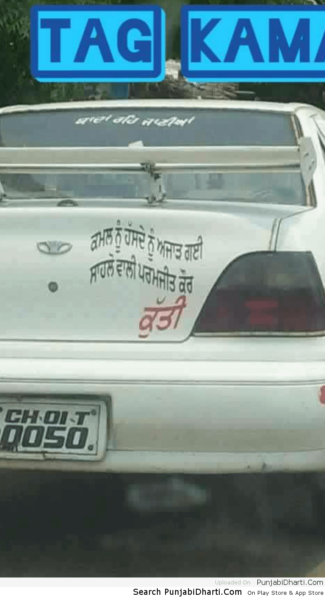 TAG KAMA
ਯਾਦਾਂ ਰਹਿ ਜਾਣੀਆਂ
ਕਮਲ ਨੂੰ ਹੱਸਦੇ ਨੂੰ ਅਜਾੜ ਗਈ
ਸਾਹਲੋ ਵਾਲੀ ਪਰਮਜੀਤ ਕੌਰ
ਕੁੱਤੀ
CH·01·T
0050
Uploaded On - PunjabiDharti.Com
Search PunjabiDharti.Com On Play Store & App Store